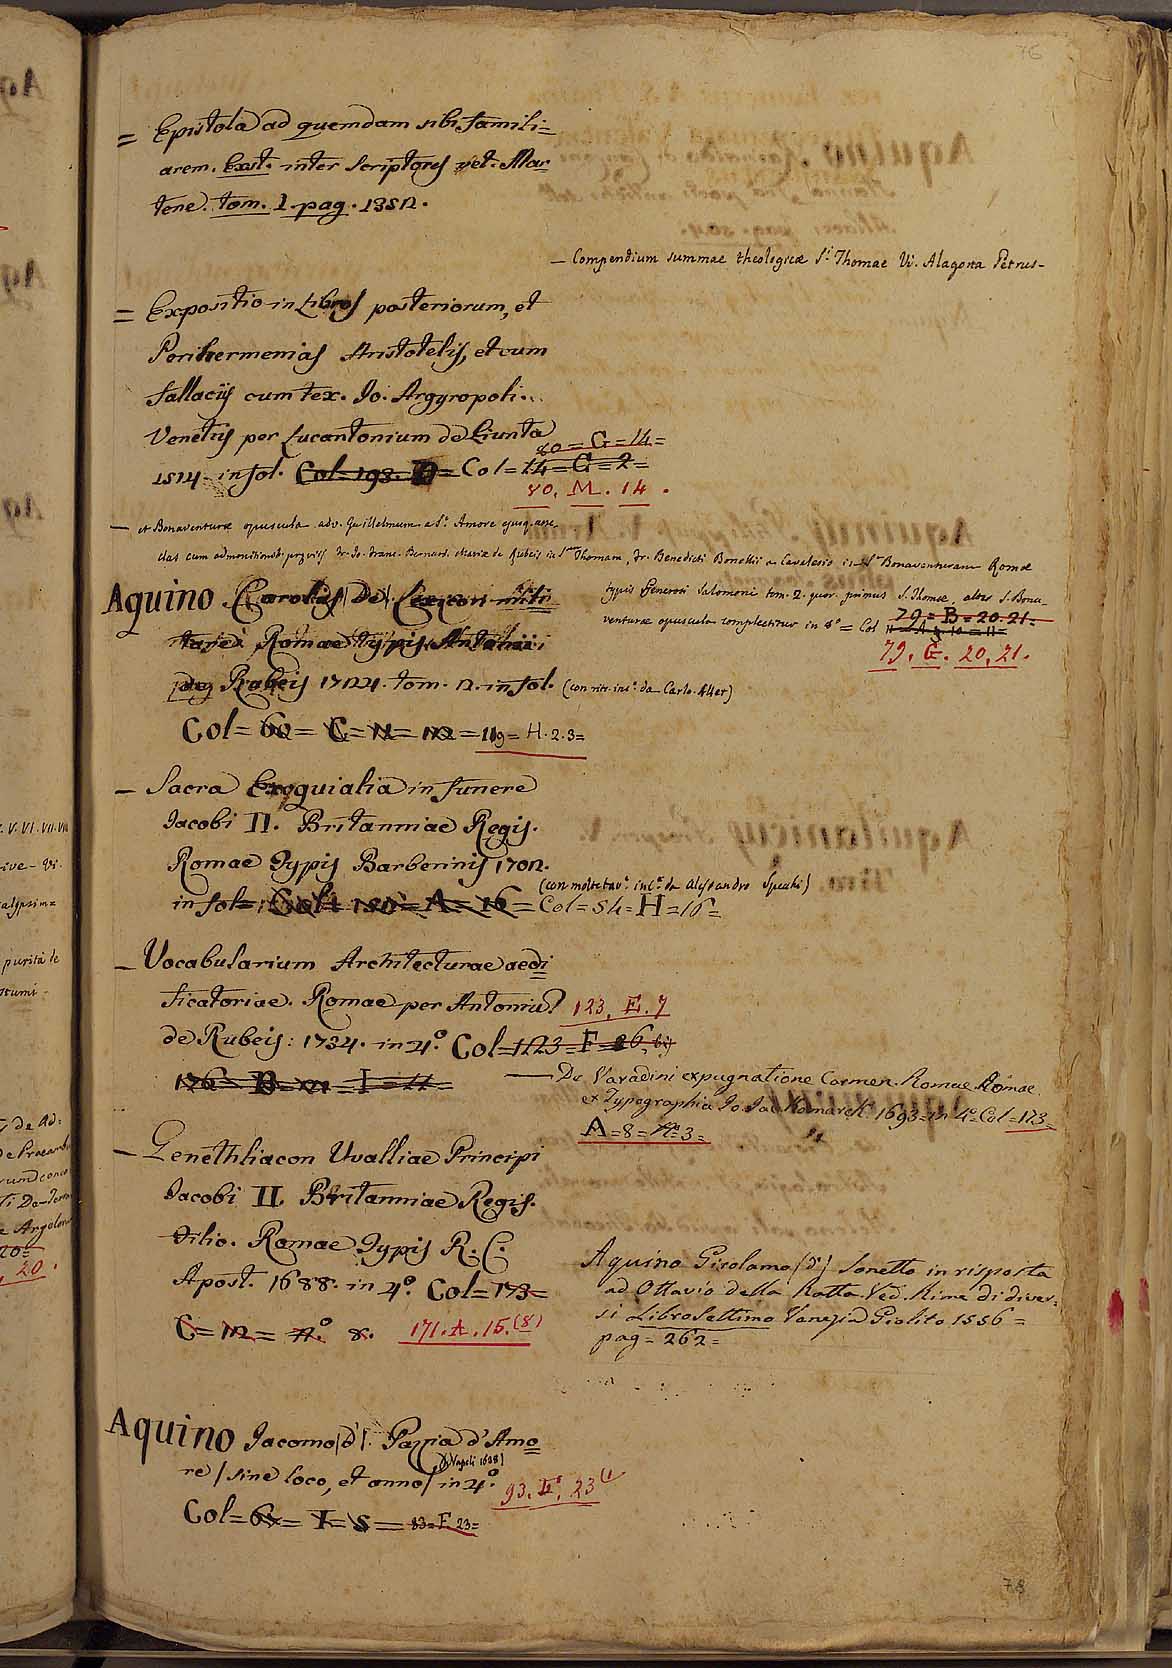 76
= Epistola ad quemdam sibi famili=
arem. Exit. inter Scriptores vet. Mar
tene. tom. 1. pag. 1352.
— Compendium summae theologicae S.i Thomae Vi. Alagona Petrus-
= Expositio in Libros posteriorum, et
Perihermenias Aristotelis, et cum
fallaciis cum tex. Io. Argyropoli..
Venetiis per Lucantonium de Giunta
80=G=14=
1514. in fol. Col=193. D= Col=14=G=2=
80. M. 14.
— et Bonaventurae opuscula adv. Guillelmum a S.o Amore ejusq. asse
clas cum admonitionib. praeviis Fr. Io. Franc. Bernard. Mariae de Rubeis in S.m Thomam, Fr. Benedicti Bonellii a Cavalesio in S.m Bonaventuram Romae
typis Generosi Salomoni tom. 2. quor. primus S. Thomae, alter S. Bona-
venturae opuscula complectitur in 8o = Col
79=B=20.21=
79. G. 20. 21.
Aquino Carolus (de) Lexicon mili
tare Romae typis Antonii
de Rubeis 1724. tom. 2. in fol. (con ritr. inc.o da Carlo Aller)
Col=60=C=11=12=119=H.2.3=
— Sacra Exequialia in funere
Iacobi II. Britanniae Regis.
Romae Typis Barberinis 1702.
(con molte tav.e inc.e da Alessandro Specchi)
in fol= Col= 120=A=16= Col=54=H=16=
— Vocabularium Architecturae aedi
ficatoriae. Romae per Antoniu
123. E. 7
de Rubeis: 1734. in 4.o Col=123=F=26
— De Varadini expugnatione Carmen. Romae Romae
ex Typographia Io. Iac. Komarek 1693=in 4.o Col=173=
A=8=n.o3=
— Genethliacon Uvalliae Principi
Iacobi II Britanniae Regis.
Filio. Romae Typis R. C.
Apost. 1688. in 4.o Col=173=
C=12= n.o 8. 171. A. 15.(8)
Aquino Girolamo (d') Sonetto in risposta
ad Ottavio della Ratta. Ved. Rime di diver=
si Libro Settimo Venezia Giolito 1556=
pag=262=
Aquino Iacomo (d'). Pazzia d'Amo
(Napoli 1638)
re / sine loco, et anno / in 4.o
93. F. 23
Col=6=I=5=83=F. 23=
78